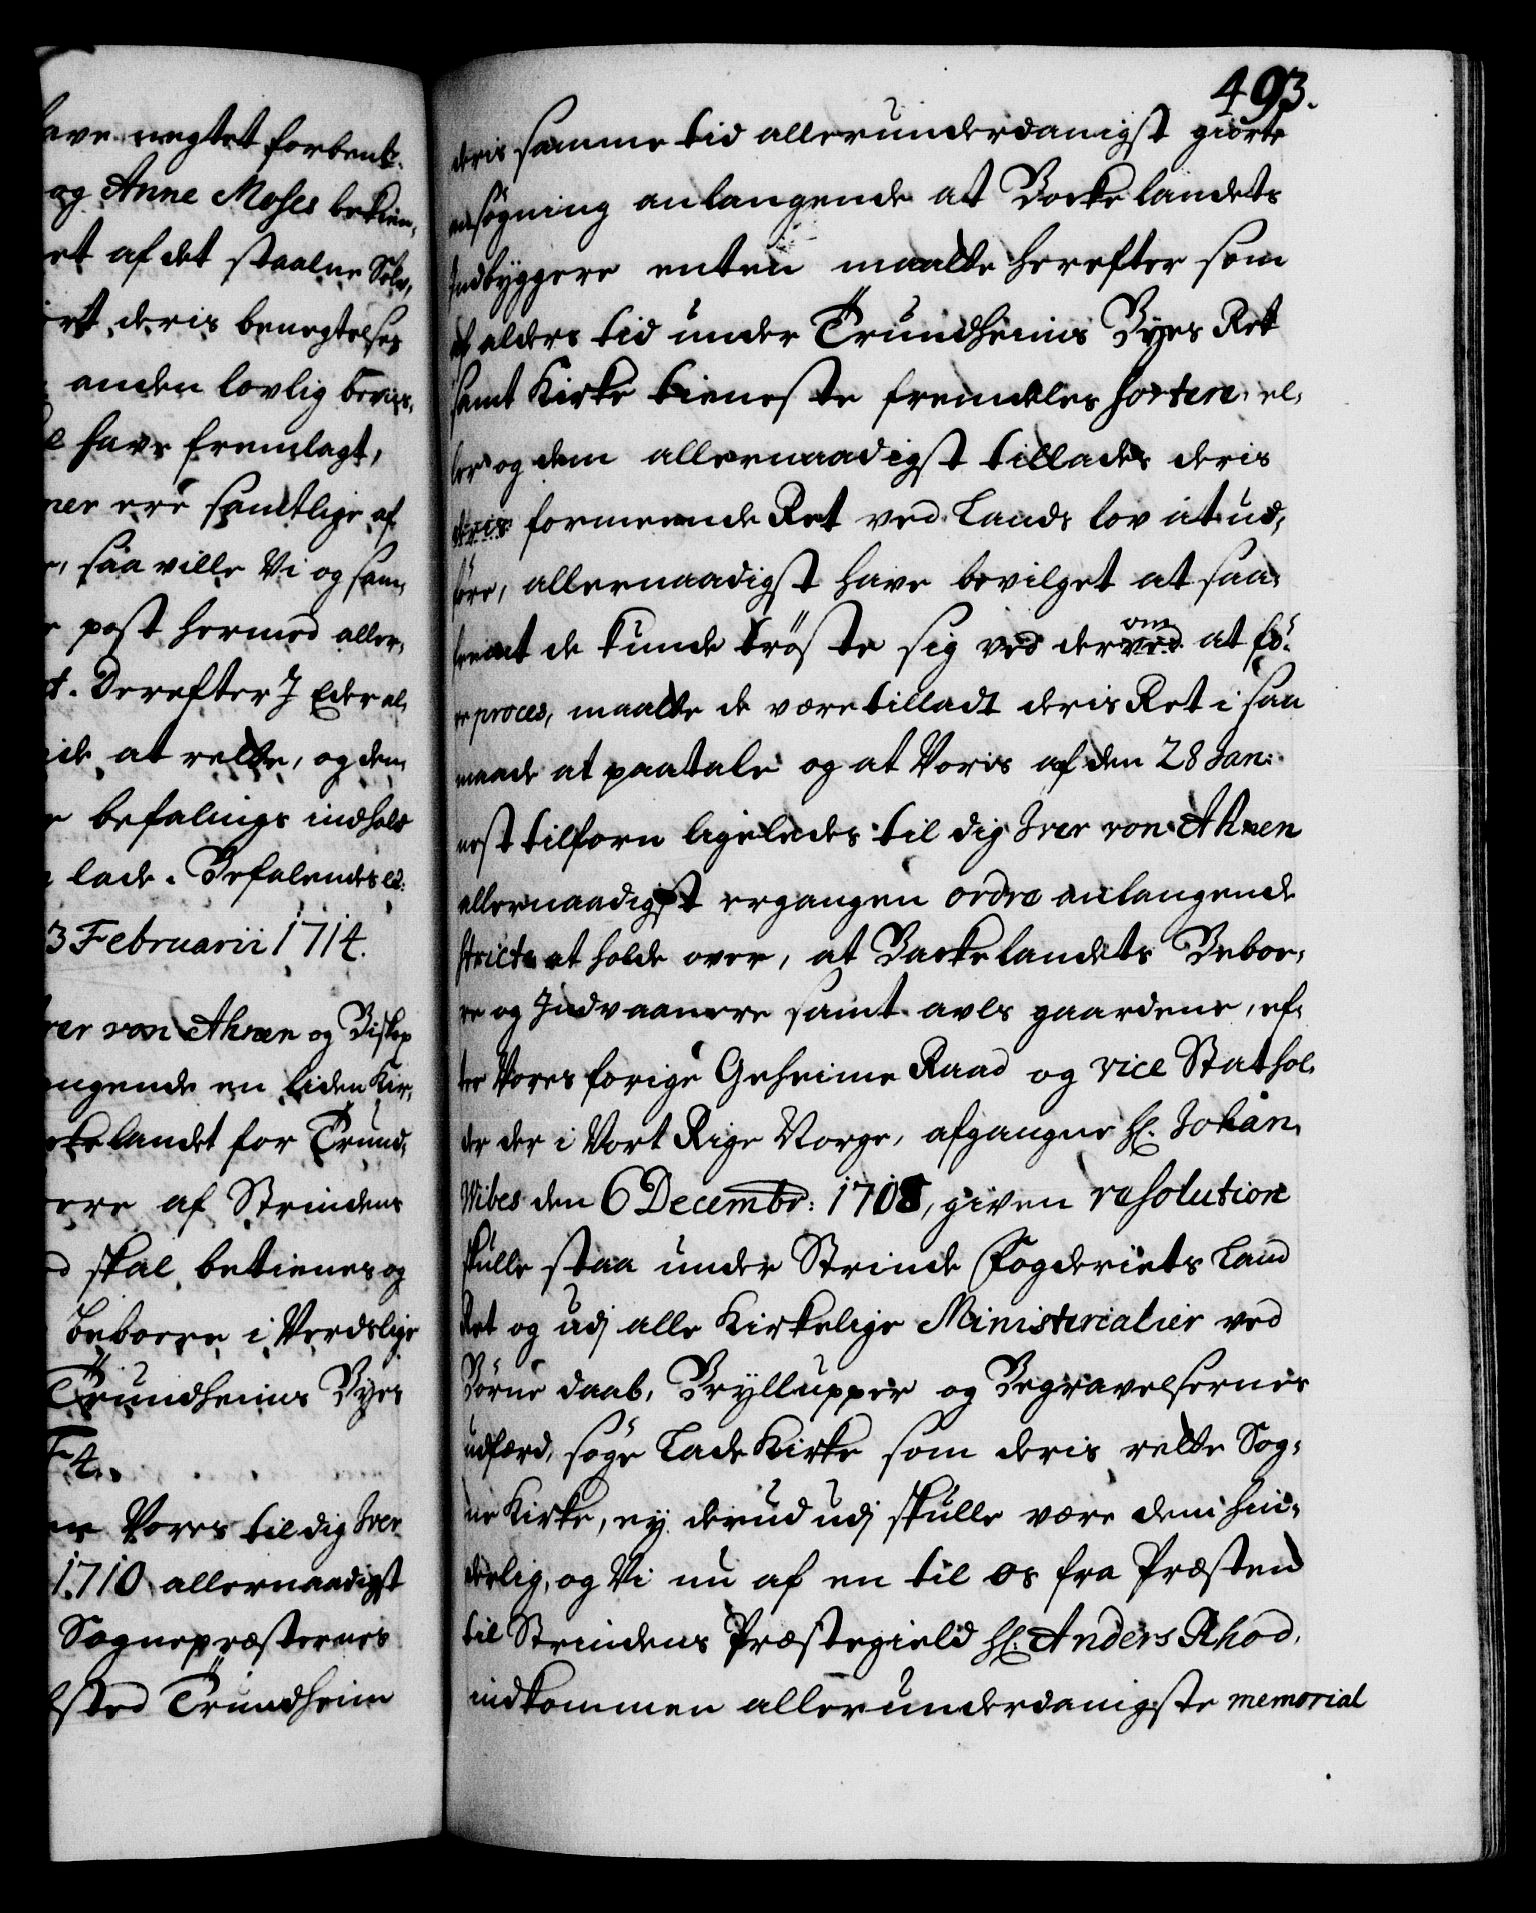 have negtet forbent.
og Anne Moses bekien,
et af det staalne Sölv,
ört, deris benegtelse
anden lovlig bevis,
have fremlagt,
ner ere samtlige af
, saa ville Vi og sam,
post hermed aller,
t. Derefter I Eder al,
ide at rette, og dem
befalings indhold
lade. Befalendes ed:
3 Februarii 1714.
Iver von Ahnen og Biskop
angende en liden Kir,
kelandet for Trund,
ere af Strindens
d skal betienes og
beboere i Verdslige
Trundheims Byes
F 4.
Vores til dig Iver
1710 allernaadigst
Sognepræsternes
sted Trundheim
493.
deris samme tid allerunderdanigst giorte
ansögning anlangende at Backelandets
Indbyggere enten maatte herefter som
af alders tid under Trundheims Byes Ret
samt Kirke tieneste fremdeles sortere, el,
ler og dem allernaadigst tillades deris
deris formeende Ret ved Lands lov at ud,
före, allernaadigst have bevilget at saa,
fremt de kunde tröste sig ved derved om at fö,
re proces, maatte de være tilladt deris Ret i saa
maade at paatale og at Voris af den 28 Jan:
nest tilforn ligeledes til dig Iver von Ahnen
allernaadigst ergangen ordre anlangende
stricte at holde over, at Backelandets Beboe,
re og Indvaanere samt avls gaardene, ef,
ter Vores forige Geheime Raad og vice Stathol,
der der i Vort Rige Norge, afgangne Hr. Johan
Wibes den 6 Decembr: 1708, given resolution
skulle staa under Strinde Fogderiets Land
Ret og udj alle Kirkelige Ministerialier ved
Börne daab, Bryllupper og Begravelsernes
udfærd, söge Lade Kirke som deris rette Sog,
ne Kirke, ey derud udj skulle være dem hin,
derlig, og Vi nu af en til os fra Præsten
til Strindens Præstegield Hr. Anders Rhod,
indkommen allerunderdanigste memorial